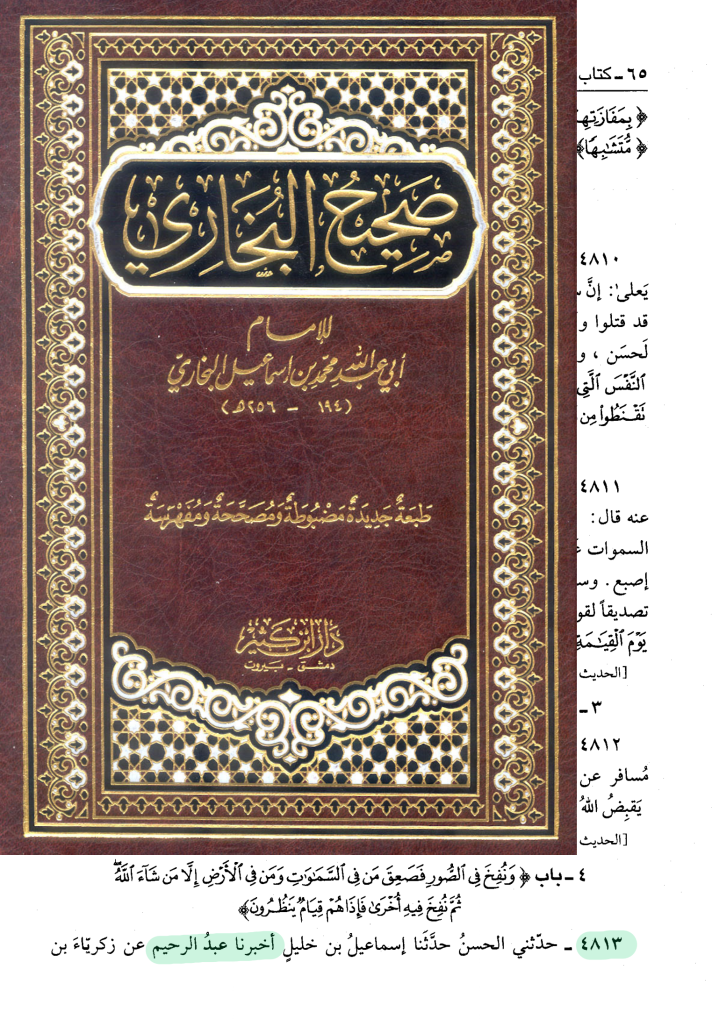 صَحِيحُ البُخَارِي
للإمَام
أبي عبد الله محمد بن اسماعيل البخاريّ
(١٩٤ - ٢٥٦هـ)
طَبعَةٌ جَدِيدَةٌ مَضبُوطَةٌ وَمُصَحَّحَةٌ وَمُفَهْرَسَةٌ
دَار ابن كَثير
دمشق - بيروت
٦٥ - كتاب
﴿ بِمَفَازَتِهِ
﴿ مُتَشَٰبِهًا﴾
٤٨١٠
يَعلى: إنَّ
قد قتلوا و
لَحسَن ، و
ٱلنَّفْسَ ٱلَّتِي
نَقْنَطُوا۟ مِن
٤٨١١
عنه قال:
السموات
إصبع. وسـ
تصديقاً لقو
يَوْمَ ٱلْقِيَٰمَةِ
[الحديث
٣ -
٤٨١٢
مُسافر عن
يَقبِضُ اللهُ
[الحديث
٤ - باب ﴿ وَنُفِخَ فِي ٱلصُّورِ فَصَعِقَ مَن فِي ٱلسَّمَٰوَٰتِ وَمَن فِي ٱلْأَرْضِ إِلَّا مَن شَآءَ ٱللَّهُ
ثُمَّ نُفِخَ فِيهِ أُخْرَىٰ فَإِذَا هُمْ قِيَامٌ يَنظُرُونَ﴾
٤٨١٣ - حدّثني الحسنُ حدَّثَنا إسماعيلُ بن خليلٍ أخبرنا عبدُ الرحيم عن زكريّاءَ بن